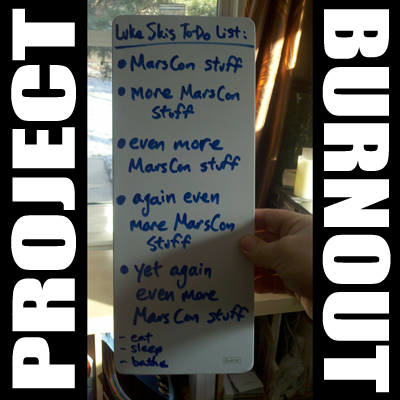 PROJECT
Luke Skis ToDo List:
• MarsCon stuff
• more MarsCon
stuff
• even more
MarsCon stuff
• again even
more MarsCon
stuff
• Yet again
even more
MarsCon stuff
- eat
- sleep
- bathe
BURNOUT